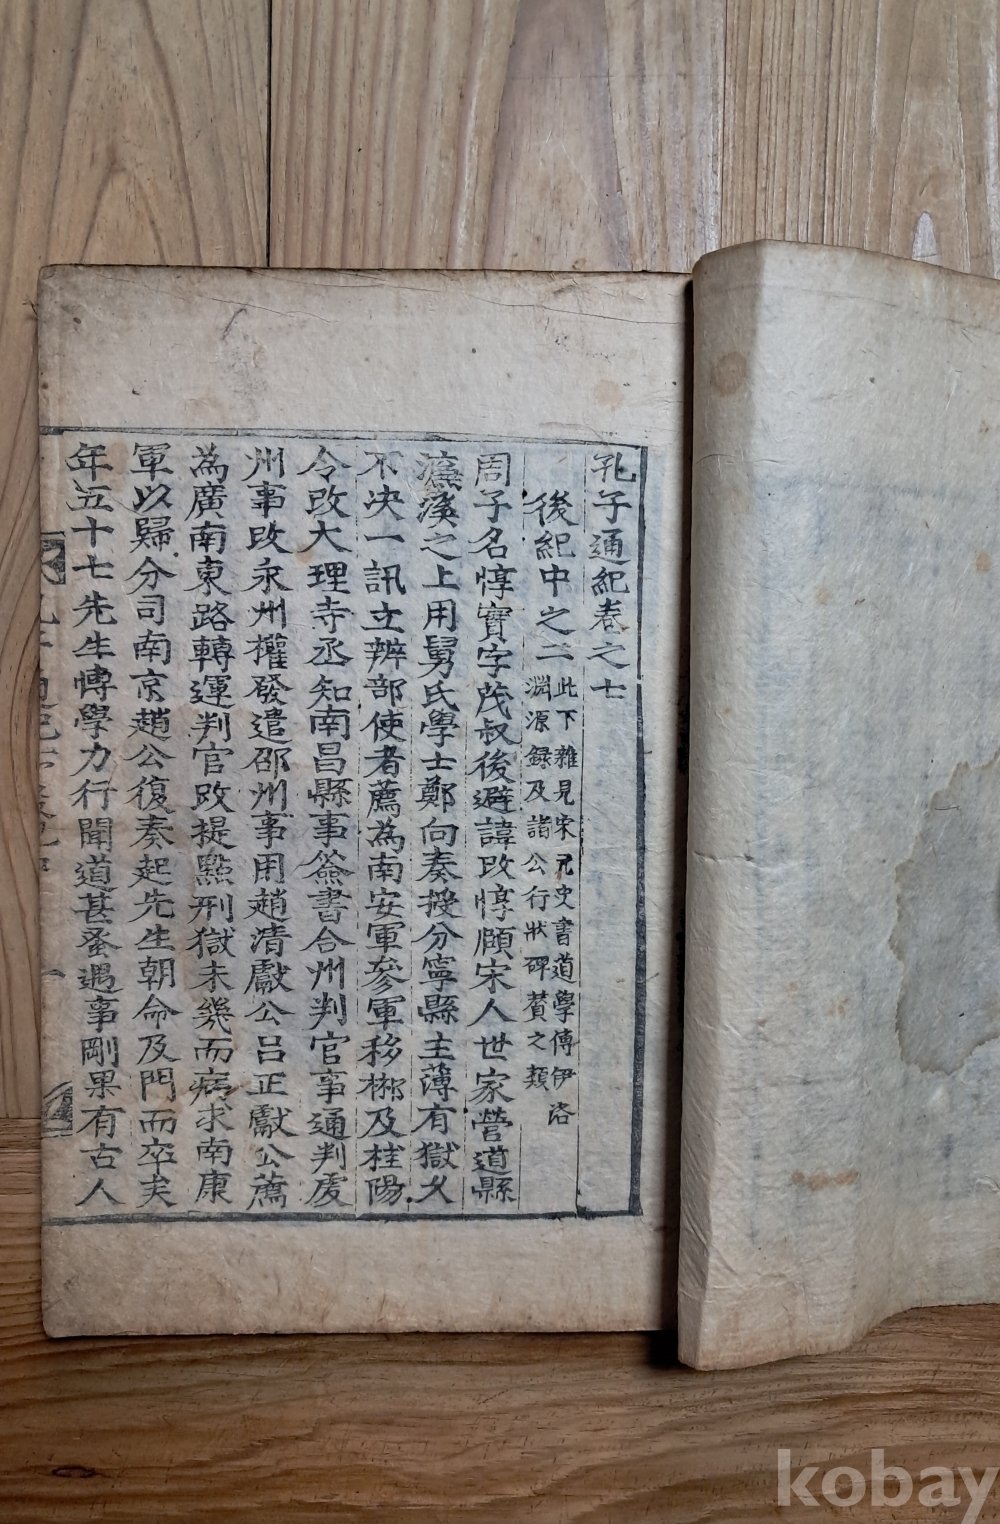 孔子通紀卷之七
後紀中之二
此下雜見宋元史書道學傳伊洛
淵源録及諸公行狀碑賛之類
周子名惇實字茂叔後避諱改惇頤宋人世家營道縣
濂溪之上用舅氏學士鄭向奏授分寧縣主薄有獄久
不决一訊立辨部使者薦為南安軍參軍移郴及桂陽
令改大理寺丞知南昌縣事簽書合州判官事通判虔
州事改永州權發遣邵州事用趙清獻公呂正獻公薦
為廣南東路轉運判官改提點刑獄未幾而病求南康
軍以歸分司南京趙公復奏起先生朝命及門而卒矣
年五十七先生博學力行聞道甚蚤遇事剛果有古人
kobay